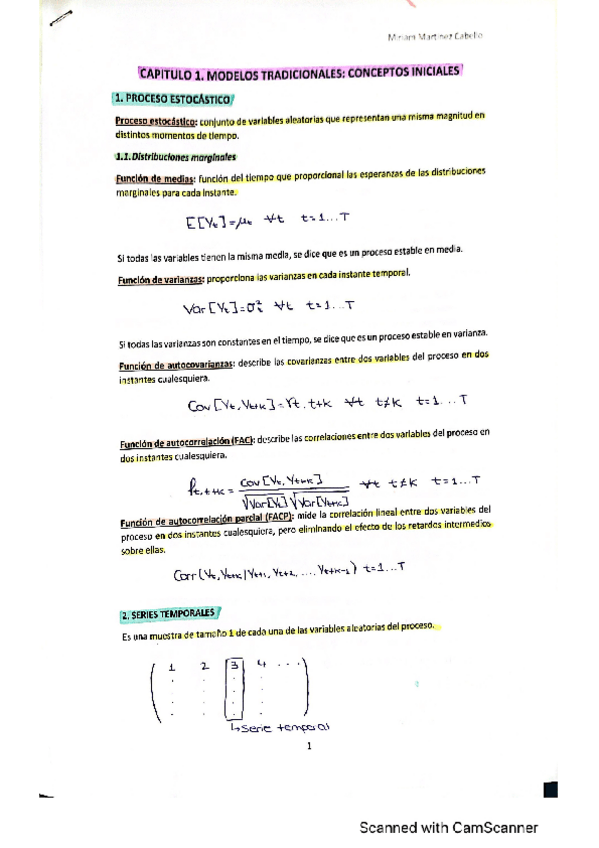 Miriam Martínez Cabello
CAPITULO 1. MODELOS TRADICIONALES: CONCEPTOS INICIALES
1. PROCESO ESTOCÁSTICO
Proceso estocástico: conjunto de variables aleatorias que representan una misma magnitud en
distintos momentos de tiempo.
1.1.Distribuciones marginales
Función de medias: función del tiempo que proporcional las esperanzas de las distribuciones
marginales para cada instante.
E[Yt]=μt ∀t t=1...T
Si todas las variables tienen la misma media, se dice que es un proceso estable en media.
Función de varianzas: proporciona las varianzas en cada instante temporal.
Var[Yt]=σ²t ∀t t=1...T
Si todas las varianzas son constantes en el tiempo, se dice que es un proceso estable en varianza.
Función de autocovarianzas: describe las covarianzas entre dos variables del proceso en dos
instantes cualesquiera.
Cov[Yt,Yt+k]=γt,t+k ∀t t≠k t=1...T
Función de autocorrelación (FAC): describe las correlaciones entre dos variables del proceso en
dos instantes cualesquiera.
ρt,t+k = Cov[Yt,Yt+k] / √Var[Yt] √Var[Yt+k] ∀t t≠k t=1...T
Función de autocorrelación parcial (FACP): mide la correlación lineal entre dos variables del
proceso en dos instantes cualesquiera, pero eliminando el efecto de los retardos intermedios
sobre ellas.
Corr(Yt,Yt+k/Yt+1,Yt+2,...,Yt+k-1) t=1...T
2. SERIES TEMPORALES
Es una muestra de tamaño 1 de cada una de las variables aleatorias del proceso.
1 2 3 4 ...
↳Serie temporal
1
Scanned with CamScanner